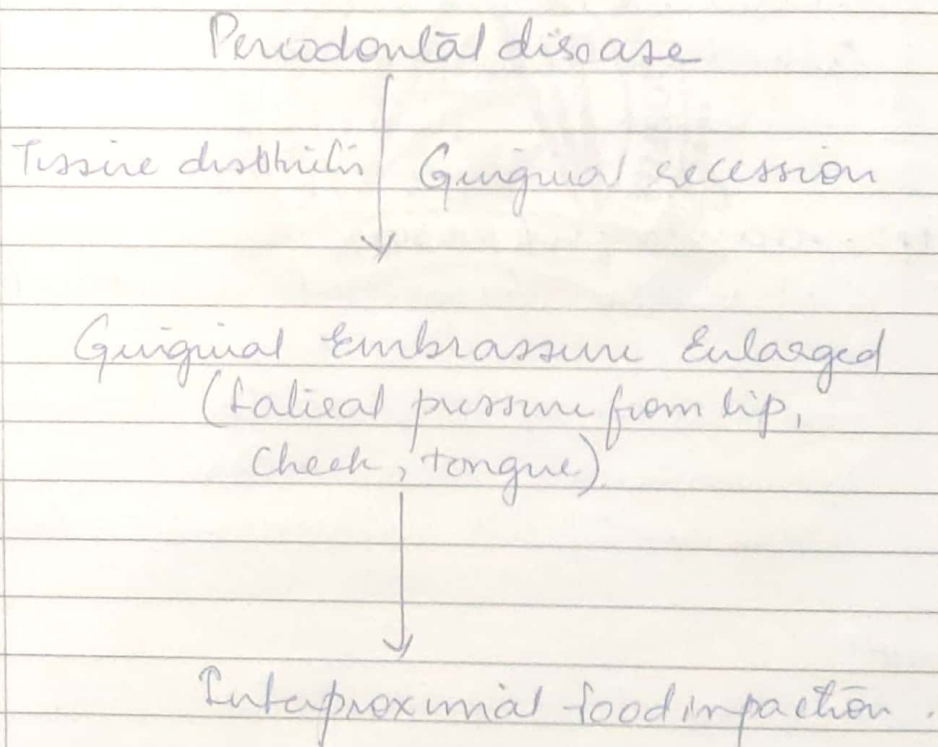 Periodontal disease
Tissue Gingival recession
Gingival Embrassure Enlarged
(Lateral pressure from lip,
Cheek, tongue).
Interproximal food impaction.